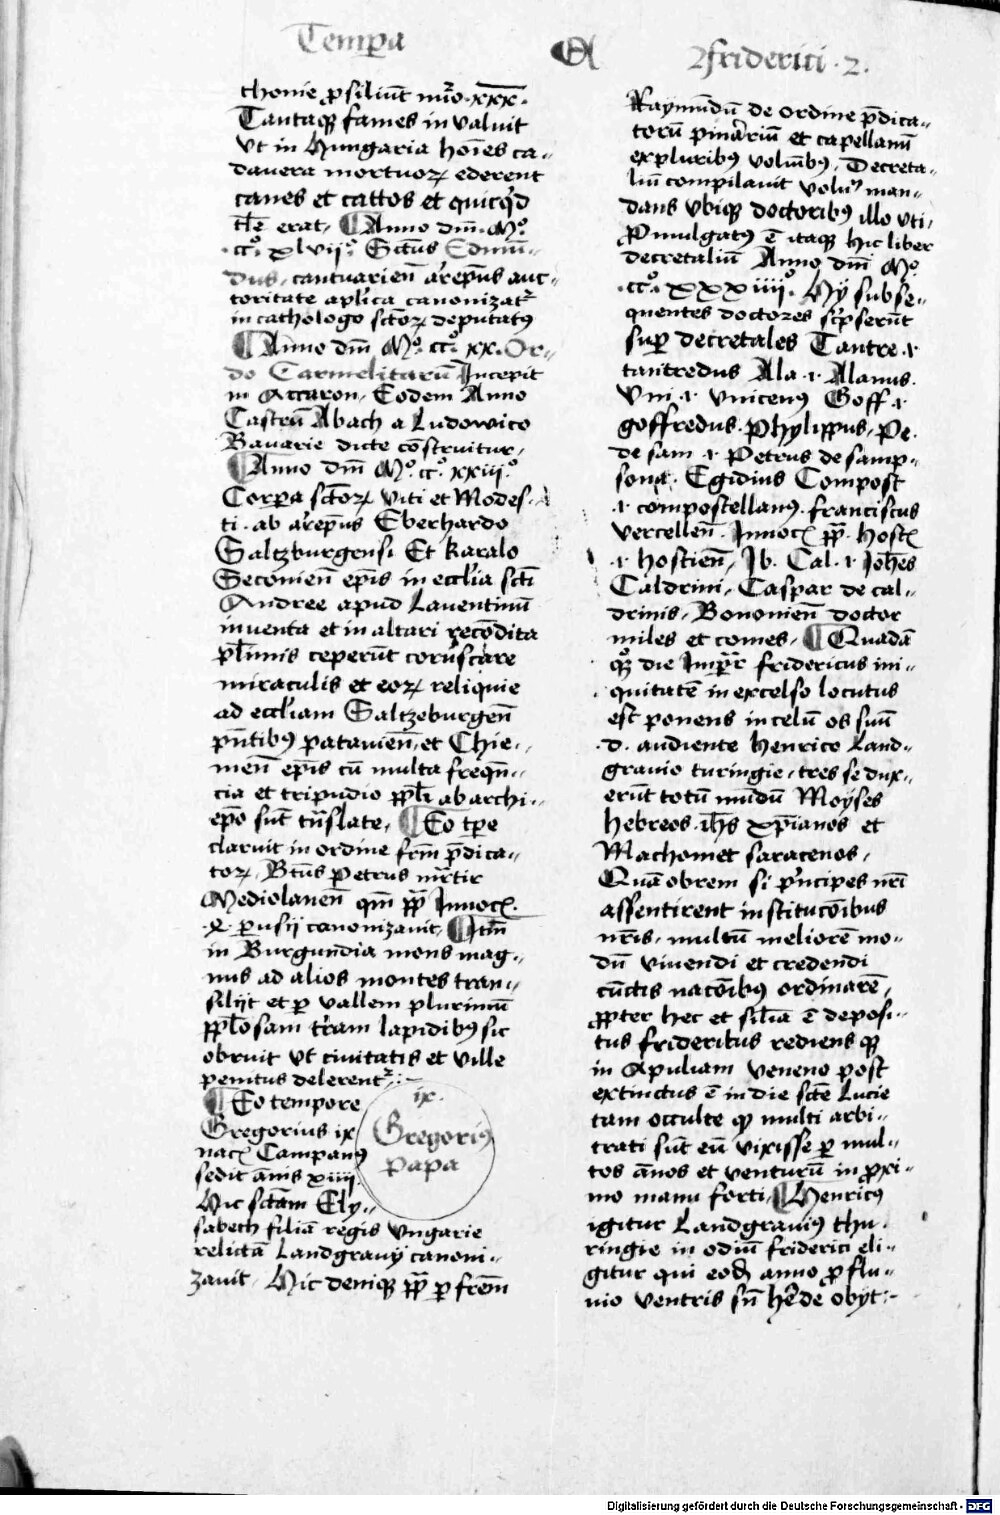 Tempa
Friderici · 2 ·
thonie ꝓsiliūt mīo · xxx ·
Tantaqꝫ fames in valuit
Vt in Hungaria hoīes ca-
dauera mortuoꝝ ederent
canes et cattos et quicq̇d
tłe erat, ¶ Anno dm̄ · M°
· cc°· xlvii°· Sctūs Edmū-
dus, cantuarien̄ arepūs auc-
toritate aplica canonizatr
in cathologo sctoꝝ deputatꝰ
¶ Anno dm̄ M°· cc°· xx · Or-
do Carmelitarū Incepit
in Accaron, Eodem Anno
Castrū Abach a Ludowico
Bauarie dicte cōstruitur,
¶ Anno dm̄ M°· cc°· xxiii°
Corpa sctoꝝ Viti et Modes-
ti · ab arepūs Eberhardo
Saltzburgensi Et Karalo
Seconien̄ ep̄is in eccłia scti
Andree apud Lauentinū
inuenta et in altari recōdita
płimis ceperūt corūscare
miraculis et eoꝝ reliquie
ad eccłiam Saltzeburgen̄
pn̄tibꝰ patauien̄, et Chie-
men̄ ep̄is cū multa freqn̄-
cia et tripudio ppłi ab archi-
ep̄o sūt trāslate, ¶ Eo tpe
claruit in ordine frm̄ p̄dica-
toꝝ, Btūs Petrus mrtir
Mediolanen̄ qm̄ pp̄ Innocꝫ
· 4 · perusij canonizauit, ¶ Itm̄
in Burgundia mons mag-
nus ad alios montes tran-
silijt et ꝑ vallem plurimū
ppłosam trām lapidibꝰ sic
obruit vt ciuitatis et ville
penitus delerentr :-
¶ Eo tempore
Gregorius ix
nacꝫ Campanꝰ
sedit ānis xiiii
Hic sctām Ely-
sabeth filiā regis Vngarie
relictā Landgrauij canoni-
zauit, Hic deniqꝫ pp̄ ꝑ frēm
ix ·
Gregoriꝰ
papa
Raymūdū de ordine p̄dica-
torū pināriū et capellanū
ex pluribꝰ volūibꝰ, Decreta-
liū compilauit volūꝰ man-
dans vbiqꝫ doctoribꝰ illo vti,
Pmulgatꝰ ē itaqꝫ hic liber
decretaliū Anno dm̄ M°
· cc°· xxxiiii°· Hij subse-
quentes doctores scpserūt
sup decretales Tantre · i
tantredus Ala · i · Alanus ·
Vni · i · vnicenꝰ Goff · i
goffredus · Phylippus, Pe ·
de sam · i · Petrus de samp-
sona · Egidius Compost
· i · compostellanꝰ · franciscus
vercellen̄ · Innocꝫ pp̄ · Hostꝫ
· i · hostien̄, Jo · Cal · i · Johēs
Caldrini, Caspar de cal-
drinis, Bononien̄ doctor
miles et comes, ¶ Quadā
qꝫ die Impr̄ fridericus ini-
quitatē in excelso locutus
est ponens in celū os suū
· d · audiente henrico Land-
grauio turingie, tres se dux-
erūt totū mūdū Moyses
hebreos · ihs xpianos et
Machomet saracenos,
Quā obrem si p̄ncipes nr̄i
assentirent institucōibus
nr̄is, multū meliorē mo-
dū viuendi et credendi
cūctis nacōibꝰ ordinarē,
ꝓpter hec et siłia ē deposi-
tus fridericus rediens qꝫ
in Apuliam veneno post
extinctus ē in die scte Lucie
tam occulte qꝫ multi arbi-
trati sūt eū vixisse ꝑ mul-
tos ānos et venturū in ꝓxi-
mo manu forti, ¶ Henricꝰ
igitur Landgrauiꝰ thu-
ringie in odiū friderici eli-
gitur qui eod̄ anno ꝓflu-
uio ventris sn̄ hēde obijt :-
Digitalisierung gefördert durch die Deutsche Forschungsgemeinschaft - DFG